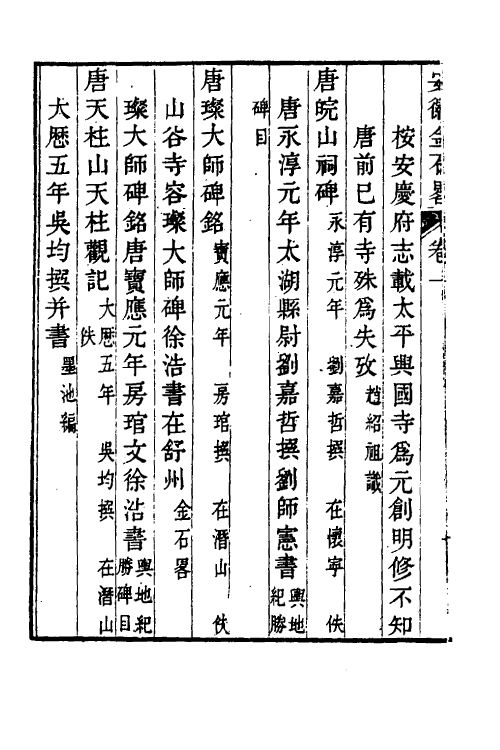 安徽金石畧 卷一
桉安慶府志載太平興國寺爲元創明修不知
唐前已有寺殊爲失攷 趙紹祖識
唐皖山祠碑 永淳元年 劉嘉哲撰 在懷寧 佚
唐永淳元年太湖縣尉劉嘉哲撰劉師憲書 輿地紀勝
碑目
唐璨大師碑銘 寶應元年 房琯撰 在潛山 佚
山谷寺容璨大師碑徐浩書在舒州 金石畧
璨大師碑銘唐寶應元年房琯文徐浩書 輿地紀勝碑目
唐天柱山天柱觀記 大厯五年 吳均撰 在潛山 佚
大厯五年吳均撰并書 墨池編